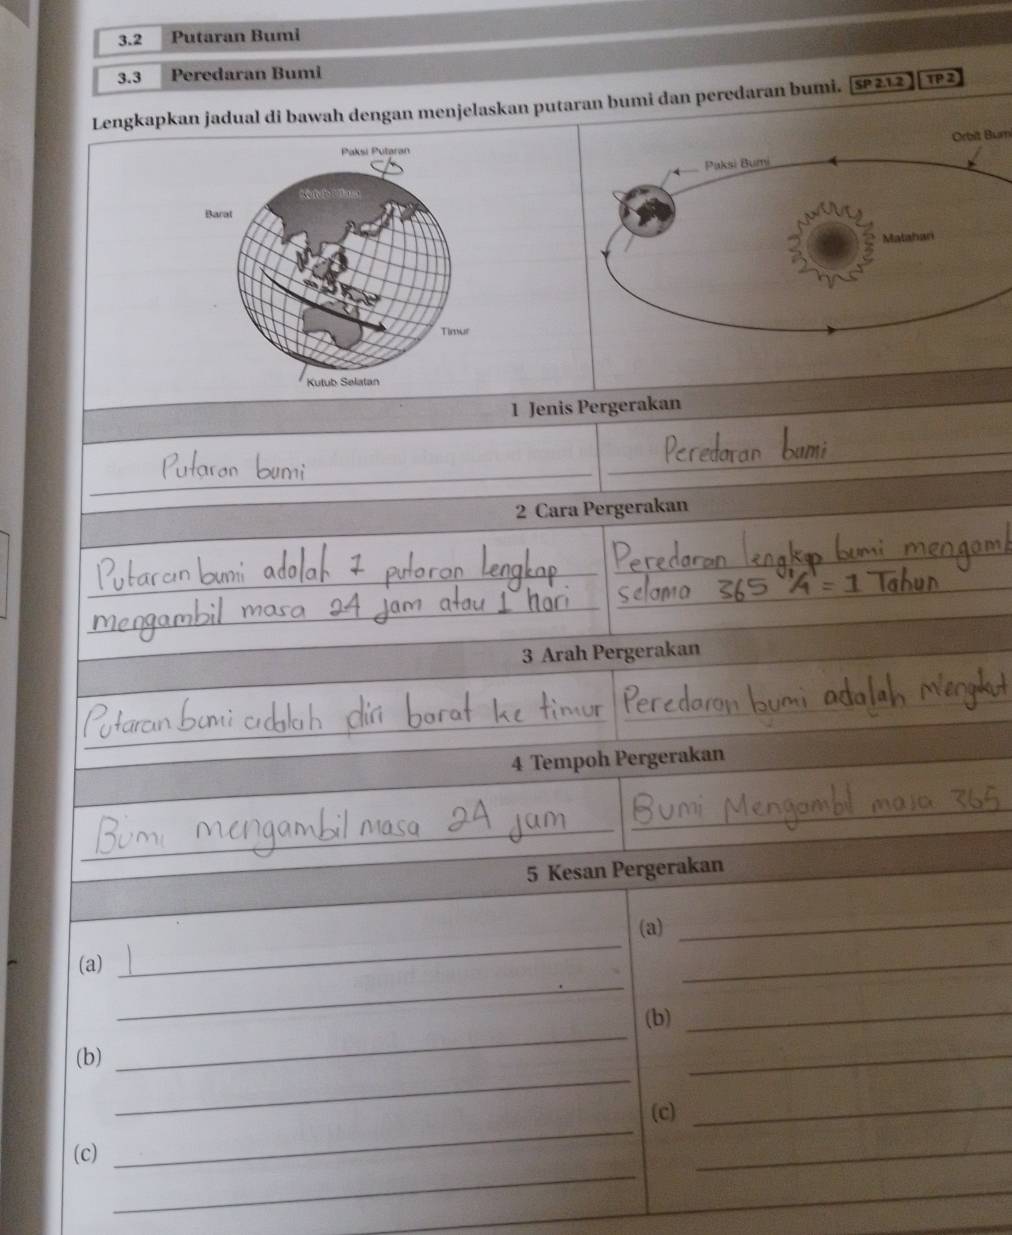 3.2 Putaran Bumi
3.3 Peredaran Bumi
Lengkapkan jadual di bawah dengan menjelaskan putaran bumi dan peredaran bumi. SP 2.1.2 TP 2
Paksi Putaran
Kutub Utara
Barat
Timur
Kutub Selatan
Orbit Bum
Paksi Bumi
Matahari
1 Jenis Pergerakan
Putaran bumi
Peredaran bumi
2 Cara Pergerakan
Putaran bumi adalah 1 putaran lengkap
mengambil masa 24 jam atau 1 hari
Peredaran lengkap bumi mengamb
selama 365 1/4 = 1 Tahun
3 Arah Pergerakan
Putaran bumi adalah diri barat ke timur
Peredaran bumi adalah Mengkut
4 Tempoh Pergerakan
Bumi mengambil masa 24 jam
Bumi Mengambil masa 365
5 Kesan Pergerakan
(a)
(b)
(c)
(a)
(b)
(c)